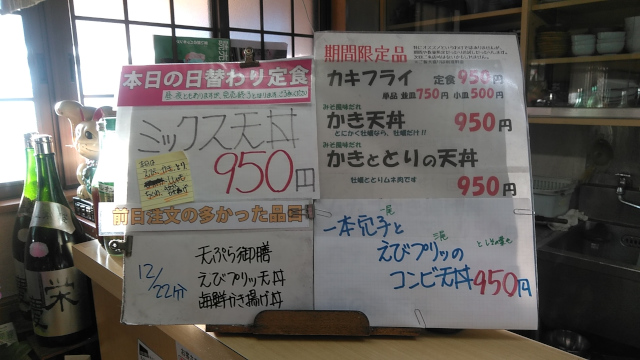 本日の日替わり定食
ミックス天丼
950円
前日注文の多かった品目
12/22分
天ぷら御膳
えびプリッ天丼
海鮮かき揚げ丼
期間限定品
カキフライ 定食950円
単品 並皿750円 小皿500円
みそ風味だれ
かき天丼 950円
とにかく牡蠣なら、牡蠣だけ!!
みそ風味だれ
かきととりの天丼
牡蠣ととりムネ肉です 950円
一本穴子と
えびプリッの
コンビ天丼950円
栄